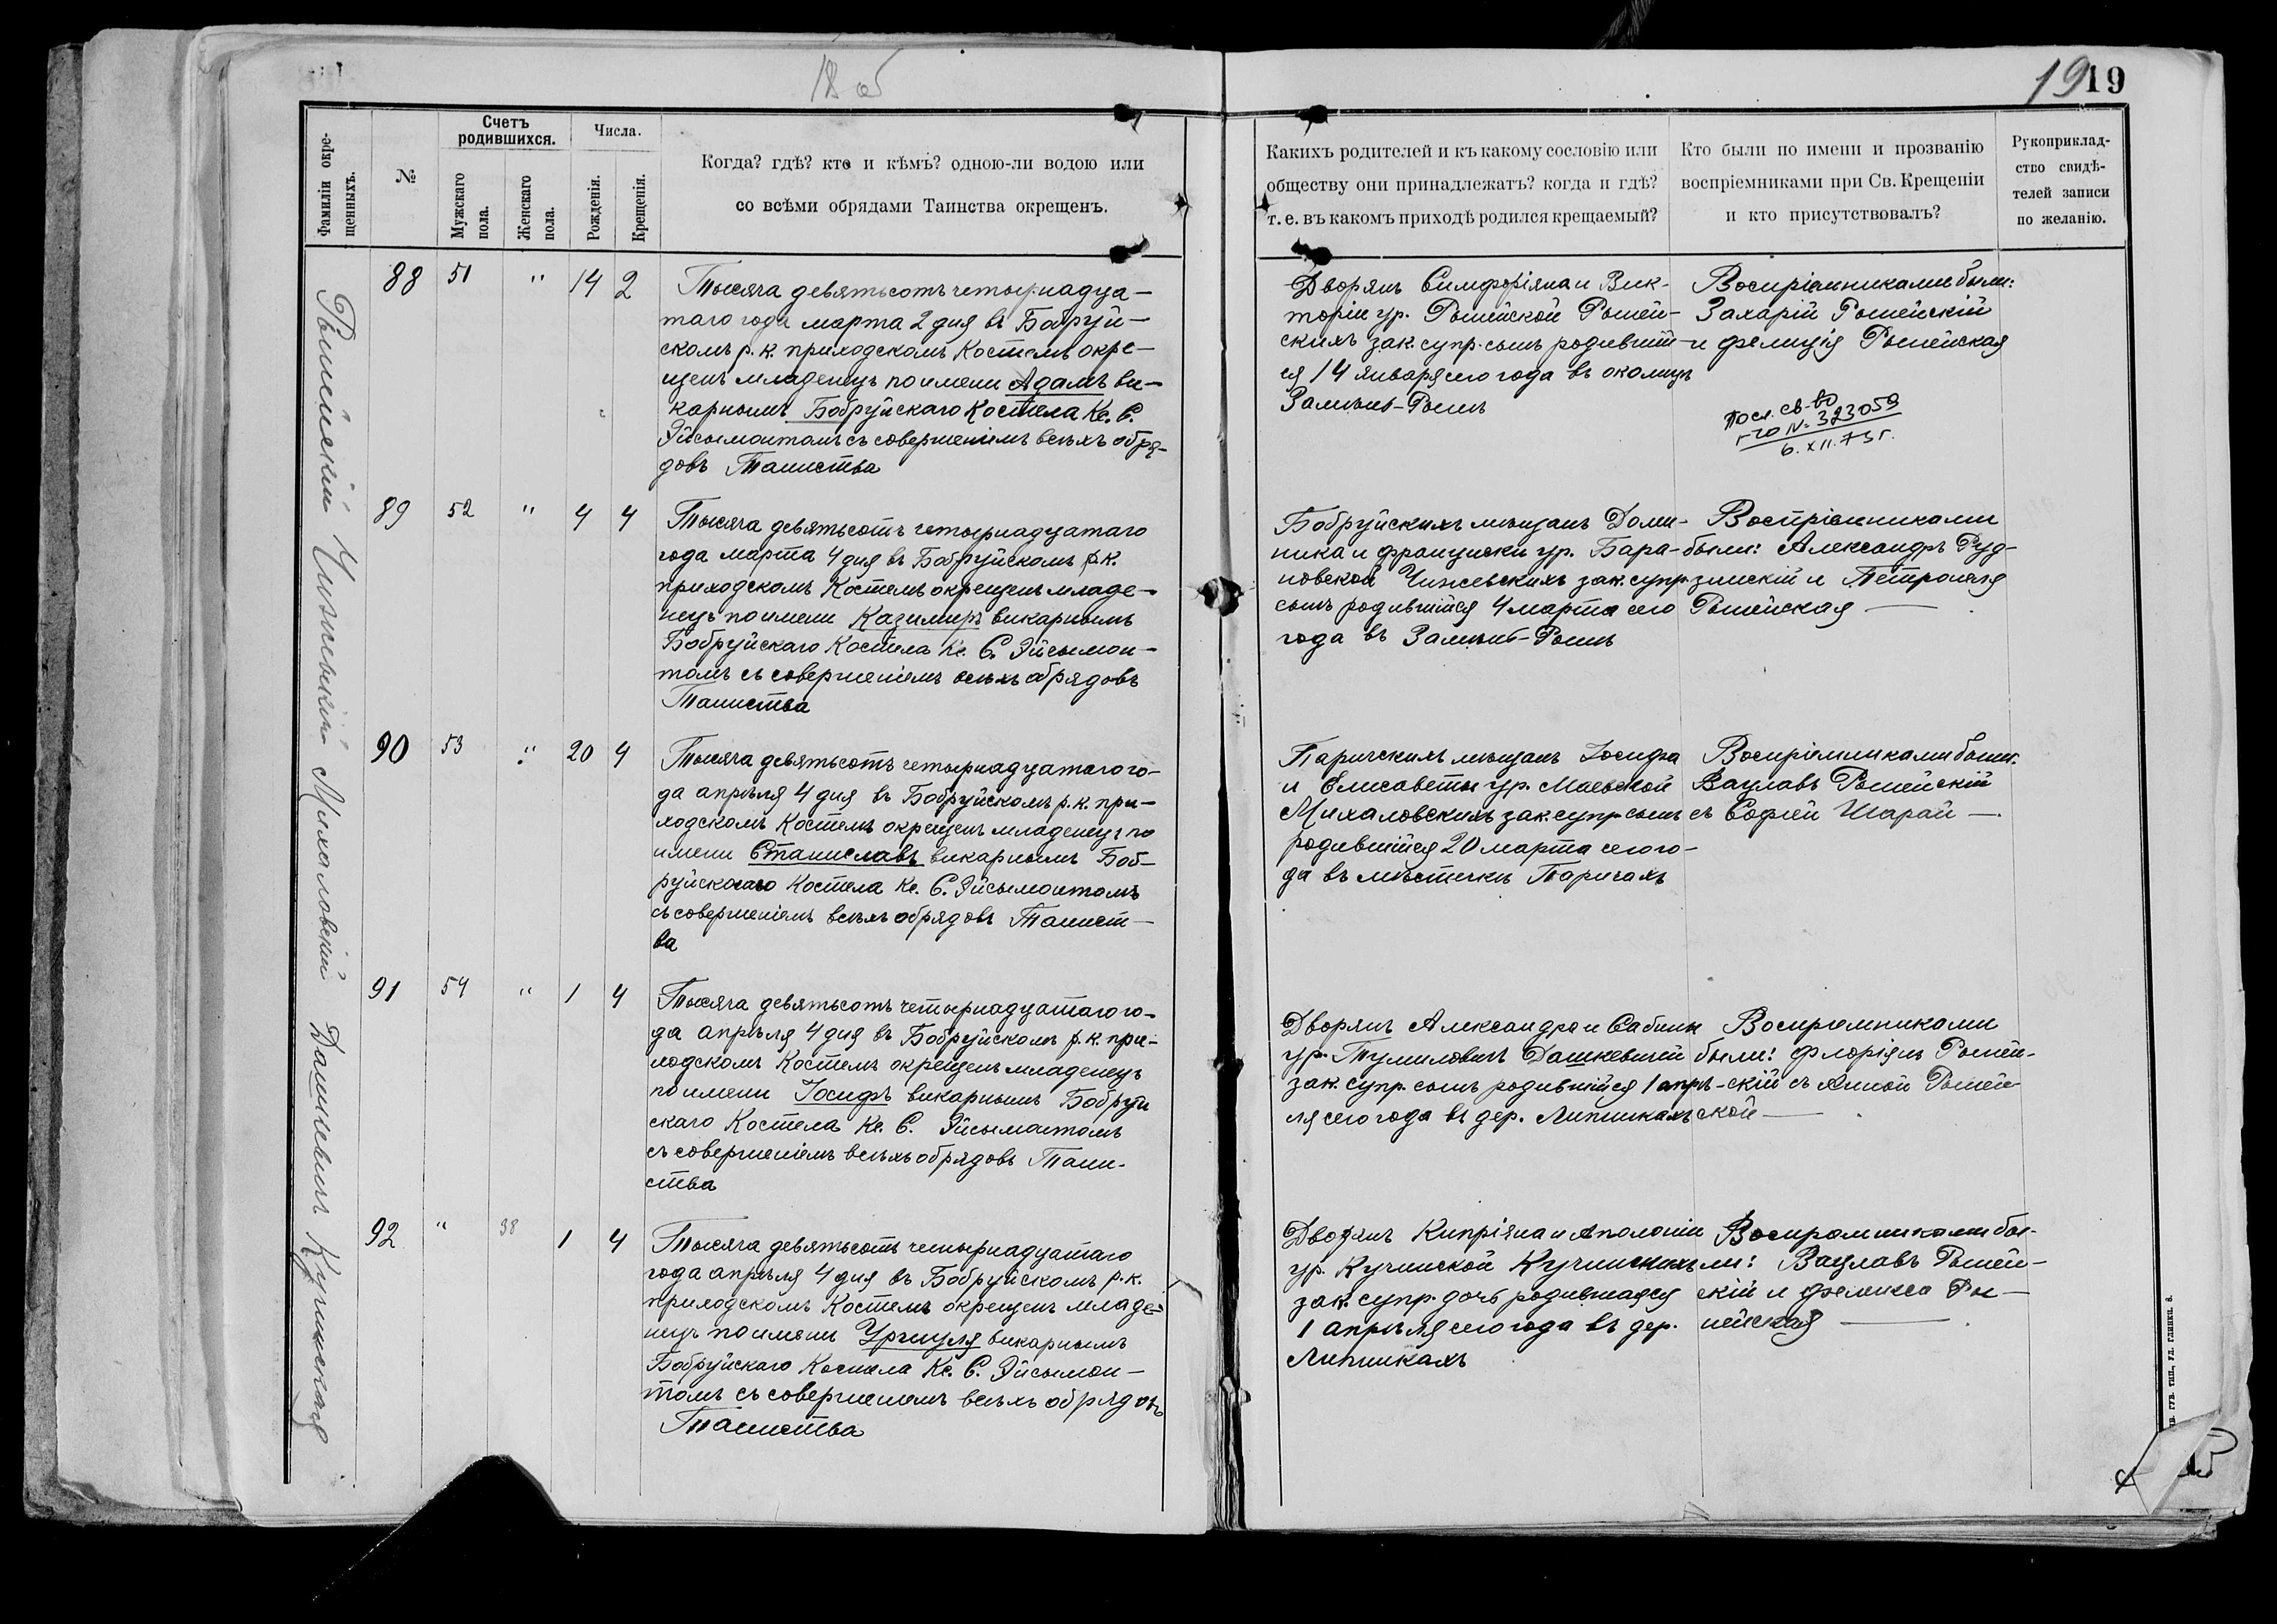 18 об
19 19
Фамиліи окре-
щенныхъ.
№
Счетъ
родившихся.
Мужскаго
пола.
Женскаго
пола.
Числа.
Рожденія.
Крещенія.
Когда? гдѣ? кто и кѣмъ? одною-ли водою или
со всѣми обрядами Таинства окрещенъ.
Какихъ родителей и къ какому сословію или
обществу они принадлежатъ? когда и гдѣ?
т. е. въ какомъ приходѣ родился крещаемый?
Кто были по имени и прозванію
воспріемниками при Св. Крещеніи
и кто присутствовалъ?
Рукоприклад-
ство свидѣ-
телей записи
по желанію.
Рынейскій
88 51 " 14 2
Тысяча девятьсотъ четырнадца-
таго года марта 2 дня въ Бобруй-
скомъ р. к. приходскомъ Костелѣ окре-
щенъ младенецъ по имени Адамъ ви-
карнымъ Бобруйскаго Костела Кс. С.
Эйсымонтомъ съ совершеніемъ всѣхъ обря-
довъ Таинства
Дворянъ Симфоріяна и Вик-
торіи ур. Рынейской Рыней-
скихъ зак. супр. сынъ родивший-
ся 14 января сего года въ околицѣ
Замынь-Рыня
Воспріемниками были:
Захарій Рынейскій
и Фелиція Рынейская
посл. св-во
г-го № 323059
6. XII. 73 г.
Чижевскій
89 52 " 4 4
Тысяча девятьсотъ четырнадцатаго
года марта 4 дня въ Бобруйскомъ р. к.
приходскомъ Костелѣ окрещенъ младе-
нецъ по имени Казимиръ викарнымъ
Бобруйскаго Костела Кс. С. Эйсымон-
томъ съ совершеніемъ всѣхъ обрядовъ
Таинства
Бобруйскихъ мѣщанъ Доми-
ника и Француски ур. Бара-
новской Чижевскихъ зак. супр.
сынъ родившійся 4 марта сего
года въ Замынь-Рыня
Воспріемниками
были: Александръ Руд-
зинскій и Петронеля
Рынейская
Михаловскій
90 53 " 20 4
Тысяча девятьсотъ четырнадцатаго го-
да апрѣля 4 дня въ Бобруйскомъ р. к. при-
ходскомъ Костелѣ окрещенъ младенецъ по
имени Станиславъ викарнымъ Боб-
руйскаго Костела Кс. С. Эйсымонтомъ
съ совершеніемъ всѣхъ обрядовъ Таинст-
ва
Паричскихъ мѣщанъ Іосифа
и Елисаветы ур. Маевской
Михаловскихъ зак. супр. сынъ
родившійся 20 марта сего го-
да въ мѣстечкѣ Паричахъ
Воспріемниками были:
Вацлавъ Рынейскій
съ Софіей Шарай
Дашкевичъ
91 54 " 1 4
Тысяча девятьсотъ четырнадцатаго го-
да апрѣля 4 дня въ Бобруйскомъ р. к. при-
ходскомъ Костелѣ окрещенъ младенецъ
по имени Іосифъ викарнымъ Бобруй
скаго Костела Кс. С. Эйсымонтомъ
съ совершеніемъ всѣхъ обрядовъ Таин-
ства
Дворянъ Александра и Сабины
ур. Тумиловичъ Дашкевичей
зак. супр. сынъ родившійся 1 апрѣ-
ля сего года въ дер. Липникахъ
Воспріемниками
были: Флоріянъ Рыней-
скій съ Анной Рыней
ской
Кучинская
92 " 38 1 4
Тысяча девятьсотъ четырнадцатаго
года апрѣля 4 дня въ Бобруйскомъ р. к.
приходскомъ Костелѣ окрещенъ младе-
нецъ по имени Уршуля викарнымъ
Бобруйскаго Костела Кс. С. Эйсымон-
томъ съ совершеніемъ всѣхъ обрядовъ
Таинства
Дворянъ Кипріяна и Аполоніи
ур. Кучинской Кучинскихъ
зак. супр. дочь родившаяся
1 апрѣля сего года въ дер.
Липникахъ
Воспріемниками бы-
ли: Вацлавъ Рыней-
скій и Фелиція Ры-
нейская